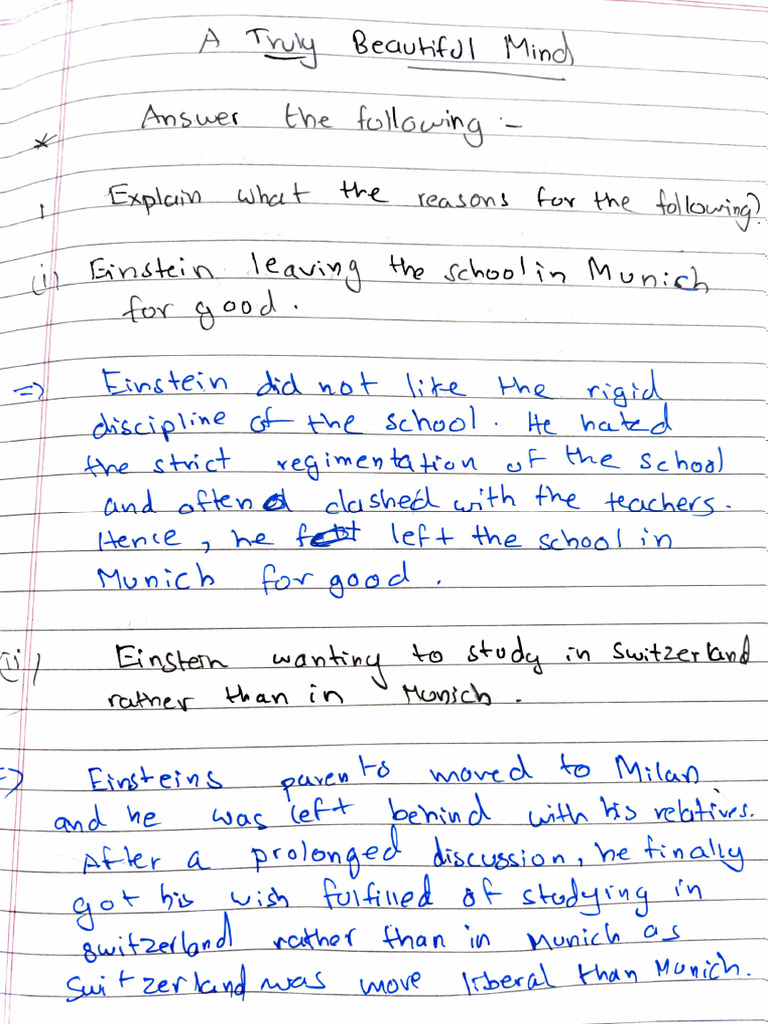 A Truly Beautiful Mind
* Answer the following :-
1 Explain what the reasons for the following?
(i) Einstein leaving the school in Munich
for good.
=> Einstein did not like the rigid
discipline of the school. He hated
the strict regimentation of the school
and often clashed with the teachers.
Hence, he left the school in
Munich for good.
(ii) Einstein wanting to study in Switzerland
rather than in Munich.
=> Einsteins parents moved to Milan
and he was left behind with his relatives.
After a prolonged discussion, he finally
got his wish fulfilled of studying in
Switzerland rather than in Munich as
Switzerland was more liberal than Munich.